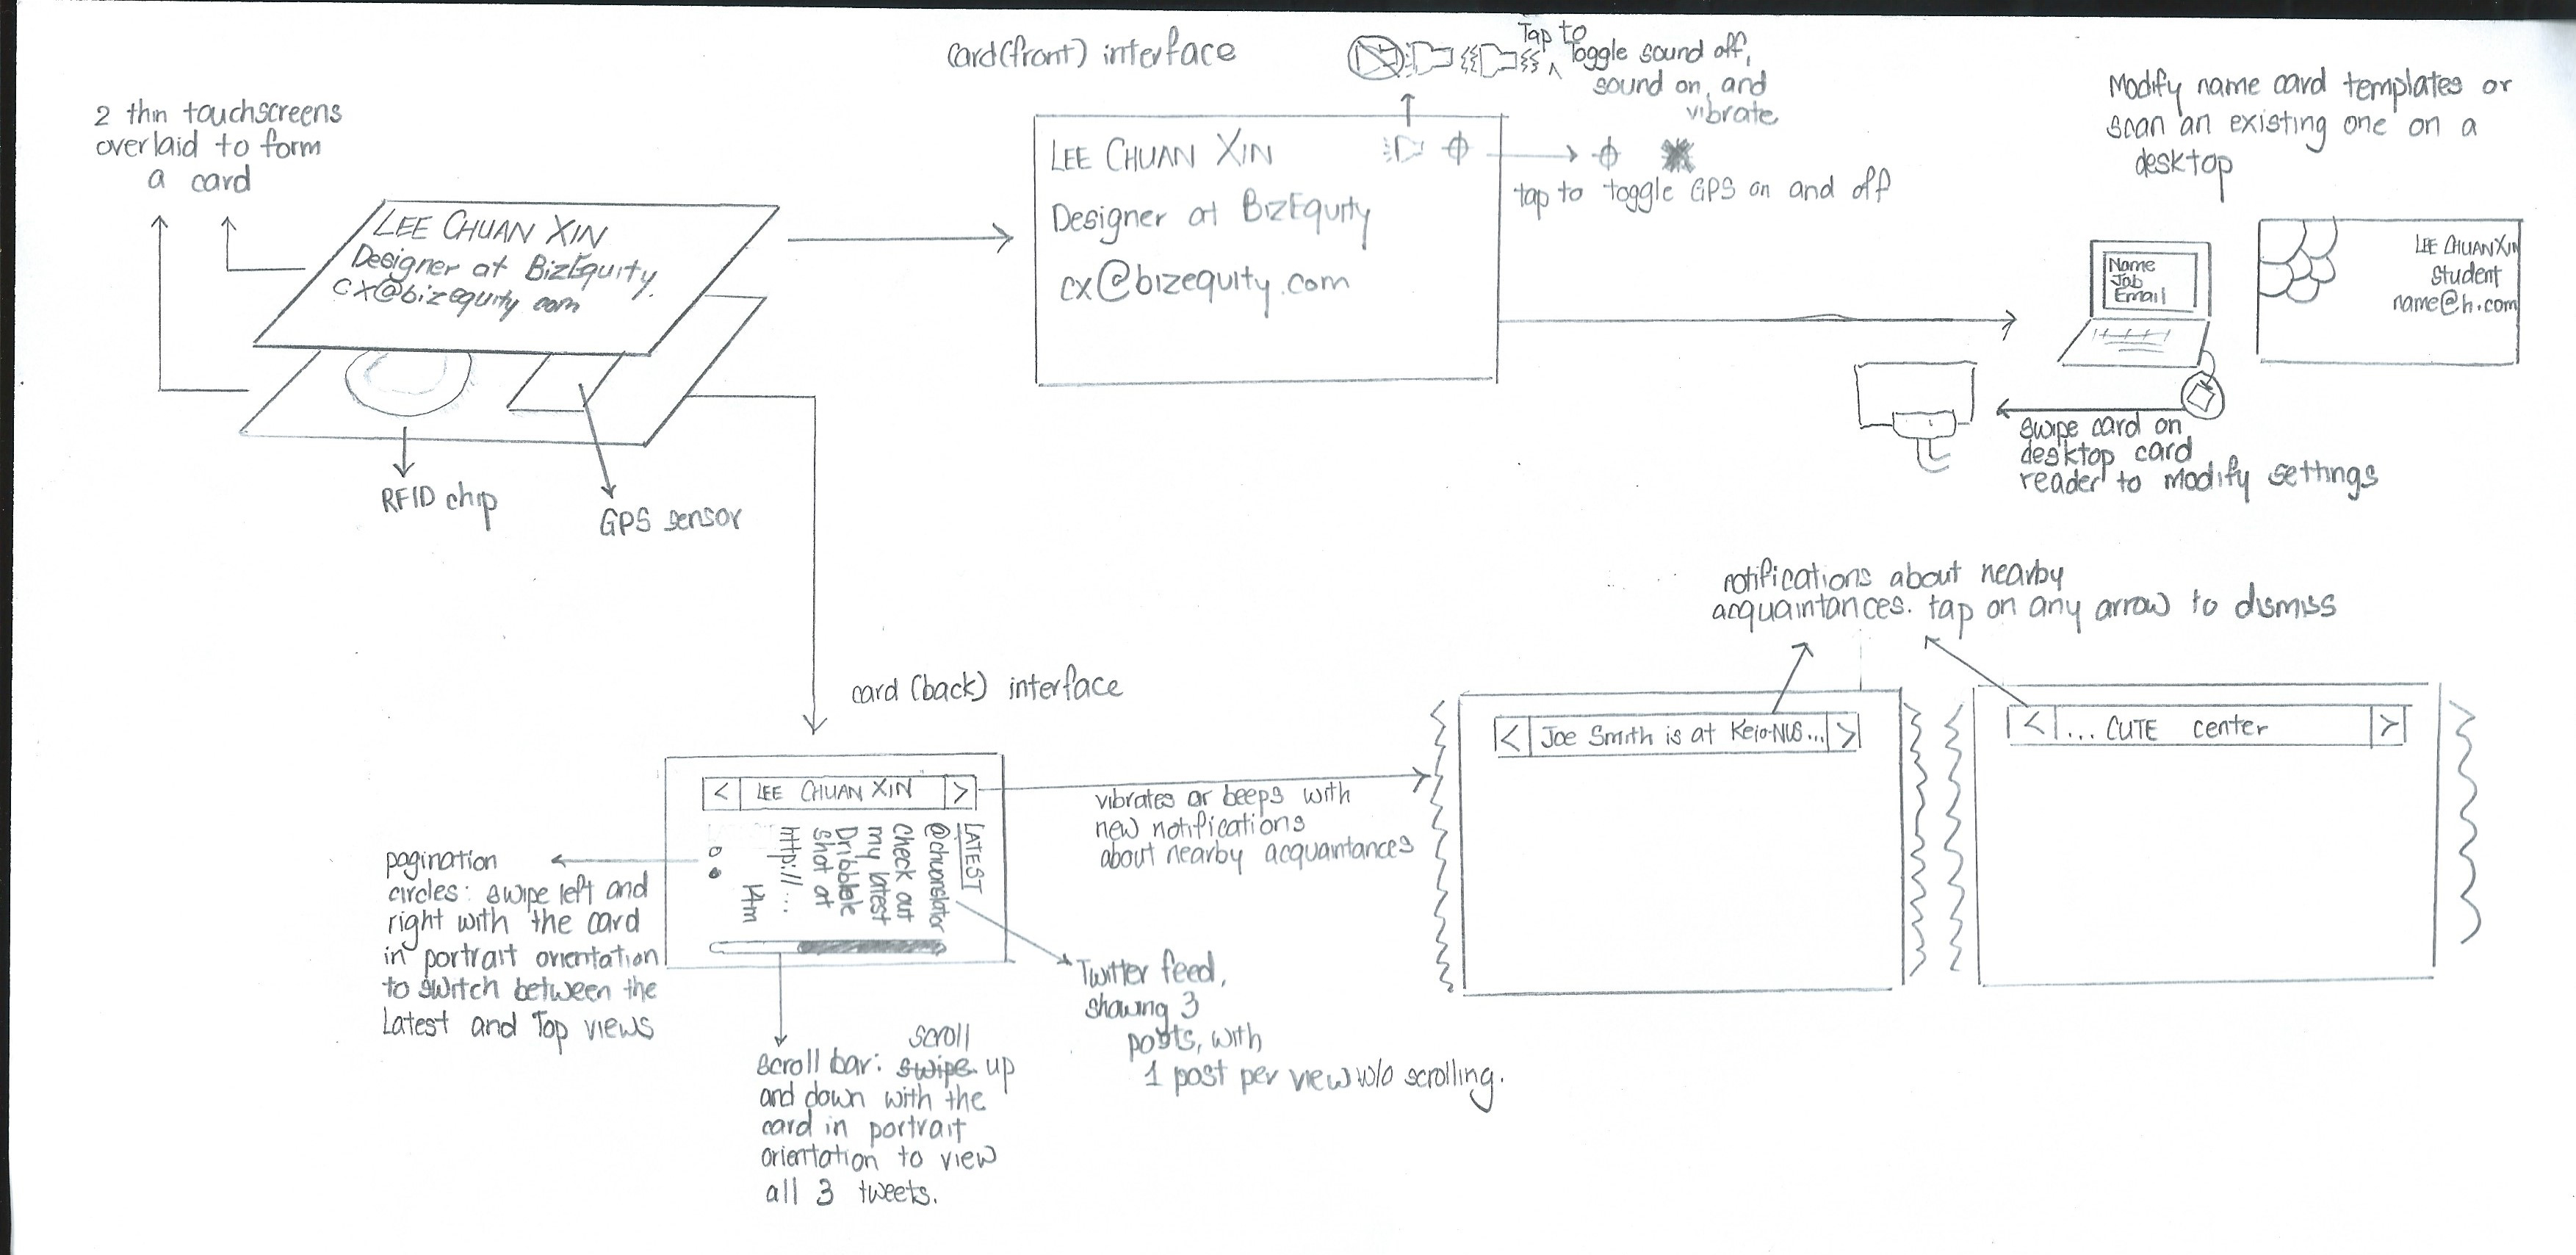 card(front) interface
Tap to
Toggle sound off,
sound on, and
vibrate
2 thin touchscreens
overlaid to form
a card
LEE CHUAN XIN
Designer at BizEquity
cx@bizequity com
RFID chip
GPS sensor
LEE CHUAN XIN
Designer at BizEquity
cx@bizequity.com
tap to toggle GPS on and off
Modify name card templates or
scan an existing one on a
desktop
Name
Job
Email
LEE CHUAN XIN
Student
name@h.com
swipe card on
desktop card
reader to modify settings
card (back) interface
< LEE CHUAN XIN >
LATEST
@chuanslator
Check out
my latest
Dribbble
shot at
http://...
14m
pagination
circles: swipe left and
right with the card
in portrait orientation
to switch between the
Latest and Top views
scroll
scroll bar: swipe up
and down with the
card in portrait
orientation to view
all 3 tweets.
Twitter feed,
showing 3
posts, with
1 post per view w/o scrolling.
vibrates or beeps with
new notifications
about nearby acquantances
notifications about nearby
acquaintances. tap on any arrow to dismiss
< Joe Smith is at Keio-NUS... >
< ... CUTE center >